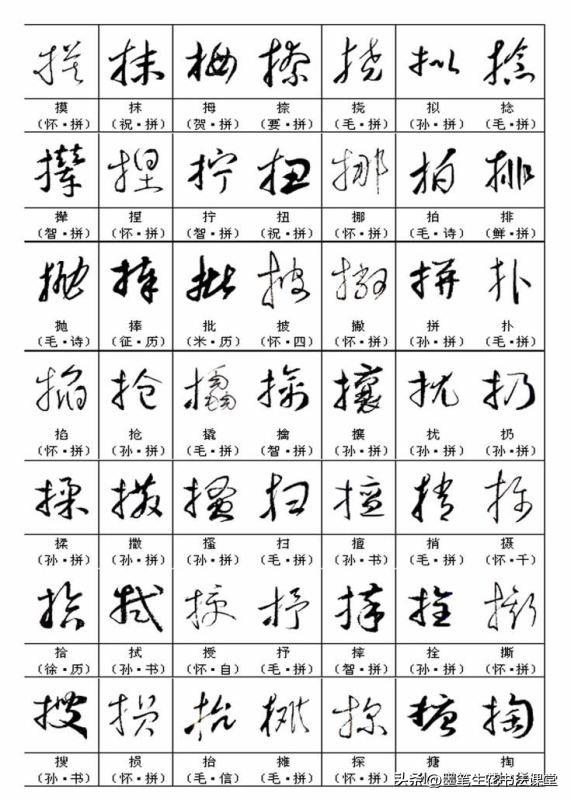 摸 抹 拇 捺 挠 拟 捻
(怀·拼) (祝·拼) (贺·拼) (要·拼) (毛·拼) (孙·拼) (毛·拼)
撵 捏 拧 扭 挪 拍 排
(智·拼) (怀·拼) (智·拼) (祝·拼) (怀·拼) (毛·诗) (鲜·拼)
抛 捧 批 披 撇 拼 扑
(毛·诗) (征·历) (米·历) (怀·四) (怀·拼) (孙·拼) (毛·拼)
掐 抢 撬 擒 攘 扰 扔
(怀·拼) (孙·拼) (毛·拼) (智·拼) (孙·拼) (孙·拼) (孙·拼)
揉 撒 搔 扫 擅 捎 摄
(孙·拼) (孙·拼) (孙·拼) (毛·拼) (孙·书) (毛·拼) (怀·千)
拾 拭 授 抒 摔 拴 撕
(徐·历) (孙·书) (怀·自) (毛·拼) (智·拼) (孙·拼) (怀·拼)
搜 损 抬 摊 探 搪 掏
(孙·书) (怀·拼) (毛·信) (毛·拼) (怀·拼)
头条@墨笔生花书法课堂